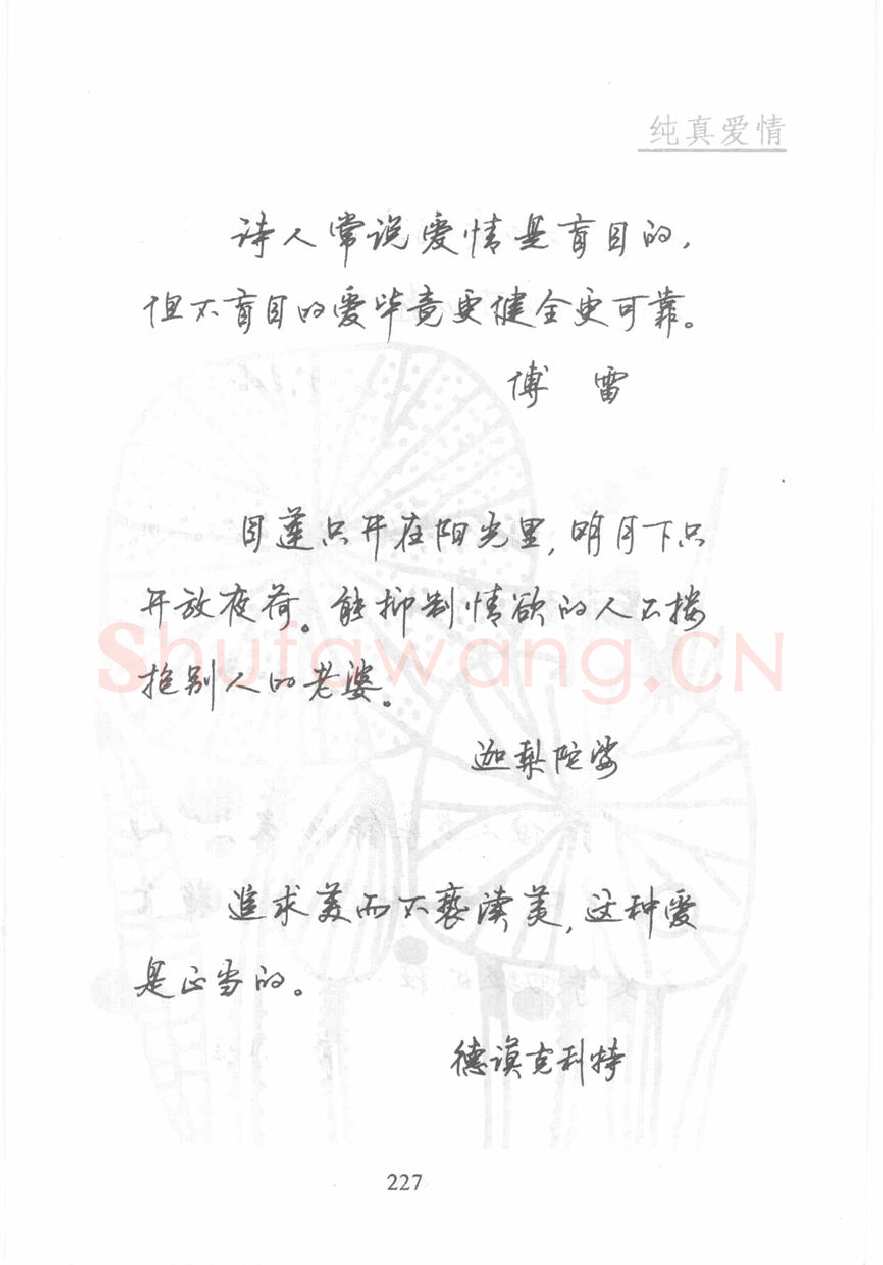 纯真爱情
诗人常说爱情是盲目的,
但不盲目的爱毕竟更健全更可靠。
傅 雷
日莲只开在阳光里,明月下只
开放夜荷。能抑制情欲的人不搂
抱别人的老婆。
Shufawang.CN
迦梨陀娑
追求美而不亵渎美,这种爱
是正当的。
德谟克利特
227